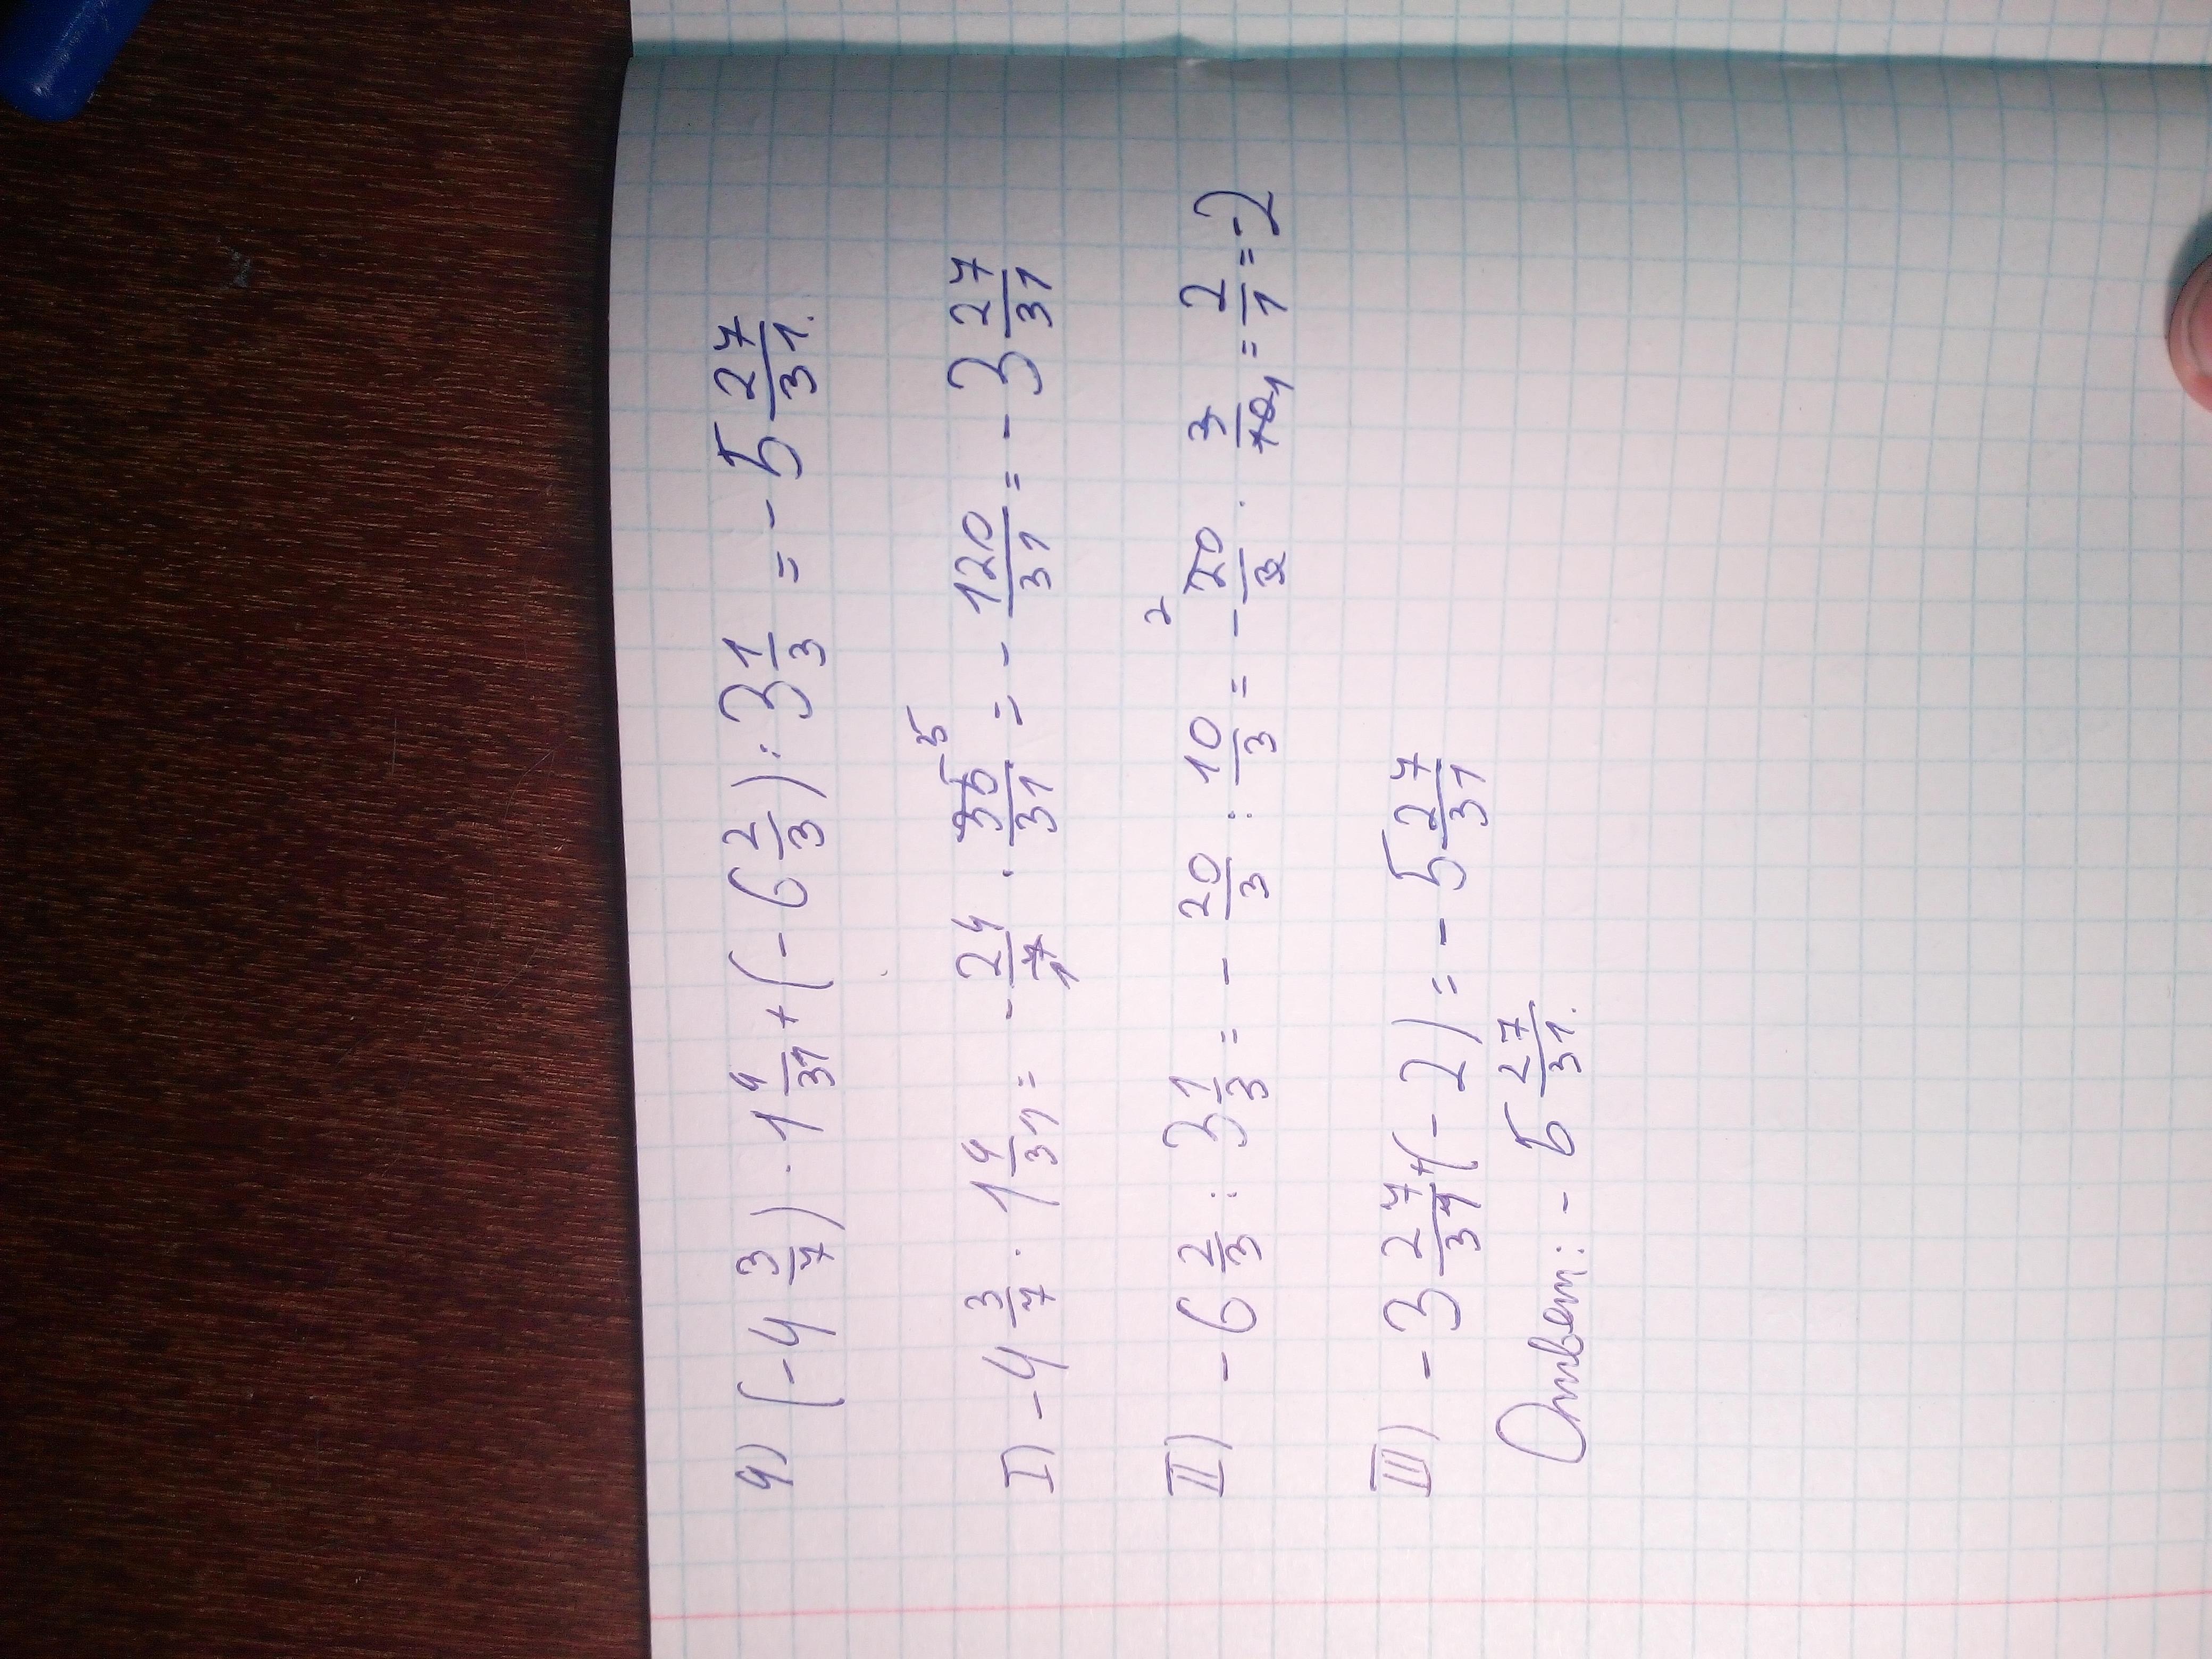 4) (-4 3/7) · 1 4/31 + (-6 2/3) : 3 1/3 = -5 27/31.
I) -4 3/7 · 1 4/31 = -24/7 · 35/31 = -120/31 = -3 27/31
II) -6 2/3 : 3 1/3 = -20/3 : 10/3 = -20/3 · 3/10 = 2/1 = -2
III) -3 27/31 + (-2) = -5 27/31
Ответ: -5 27/31.